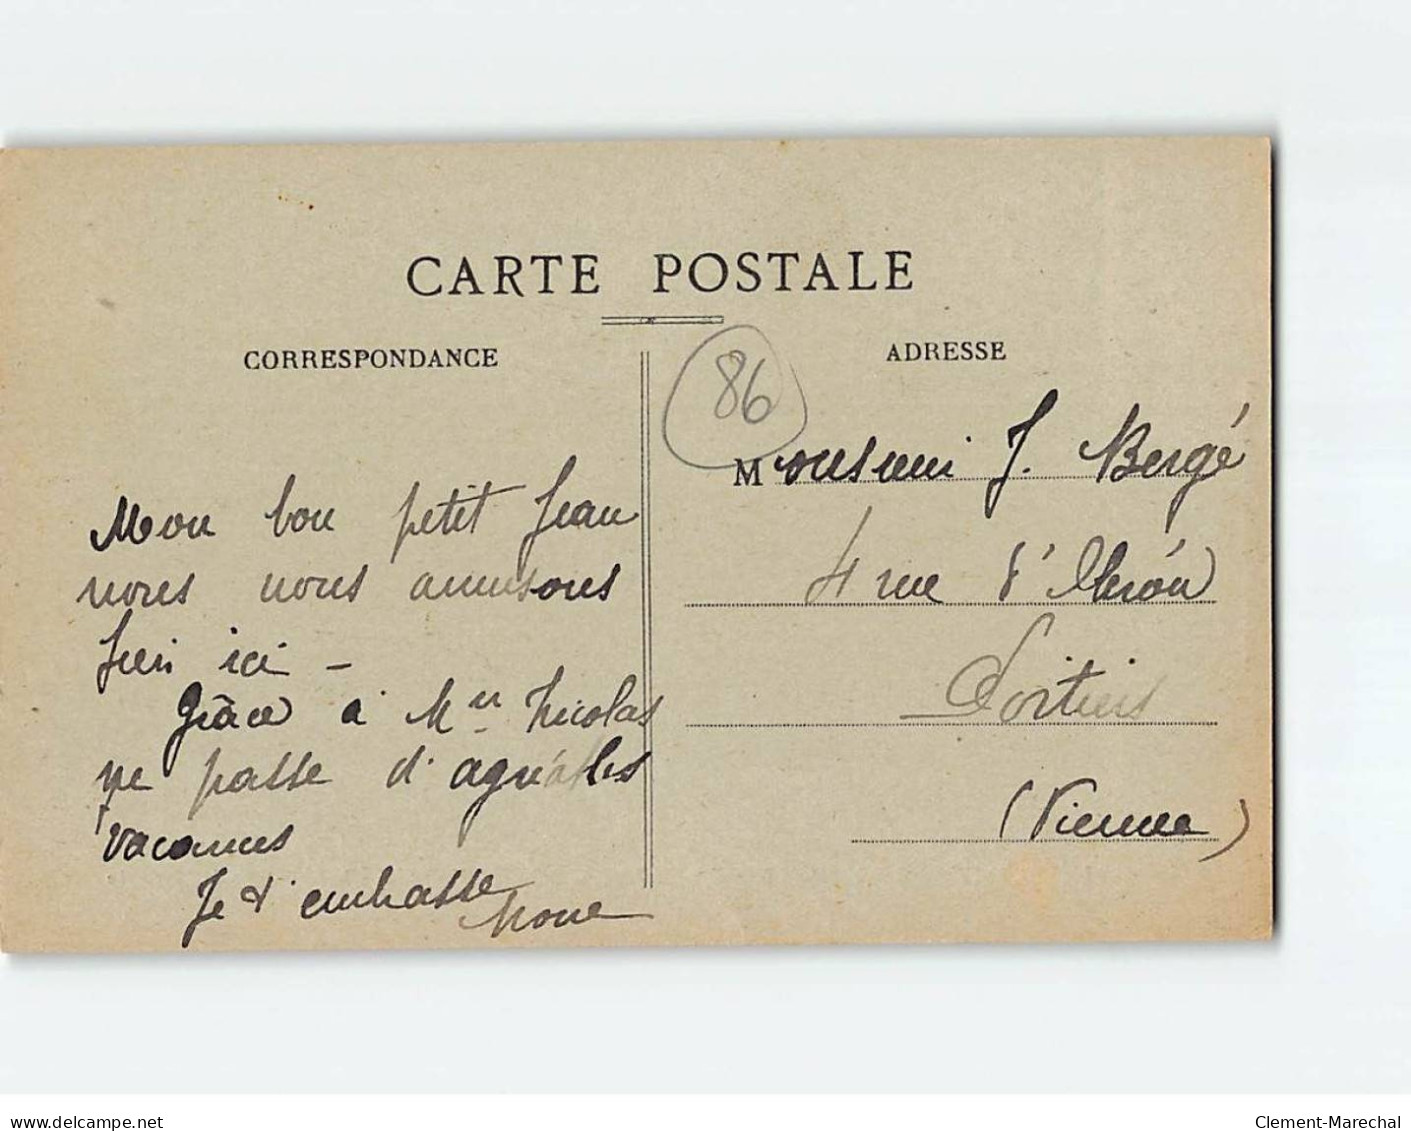 CARTE POSTALE
CORRESPONDANCE
ADRESSE
86
Mon bon petit Jean
nous nous amusons
bien ici –
Grâce à Mr Nicolas
je passe d'agréables
vacances
Je t'embrasse
Monsieur J. Bergé
4 rue d'Oléron
Poitiers
(Vienne)
delcampe.net
Clement-Marechal